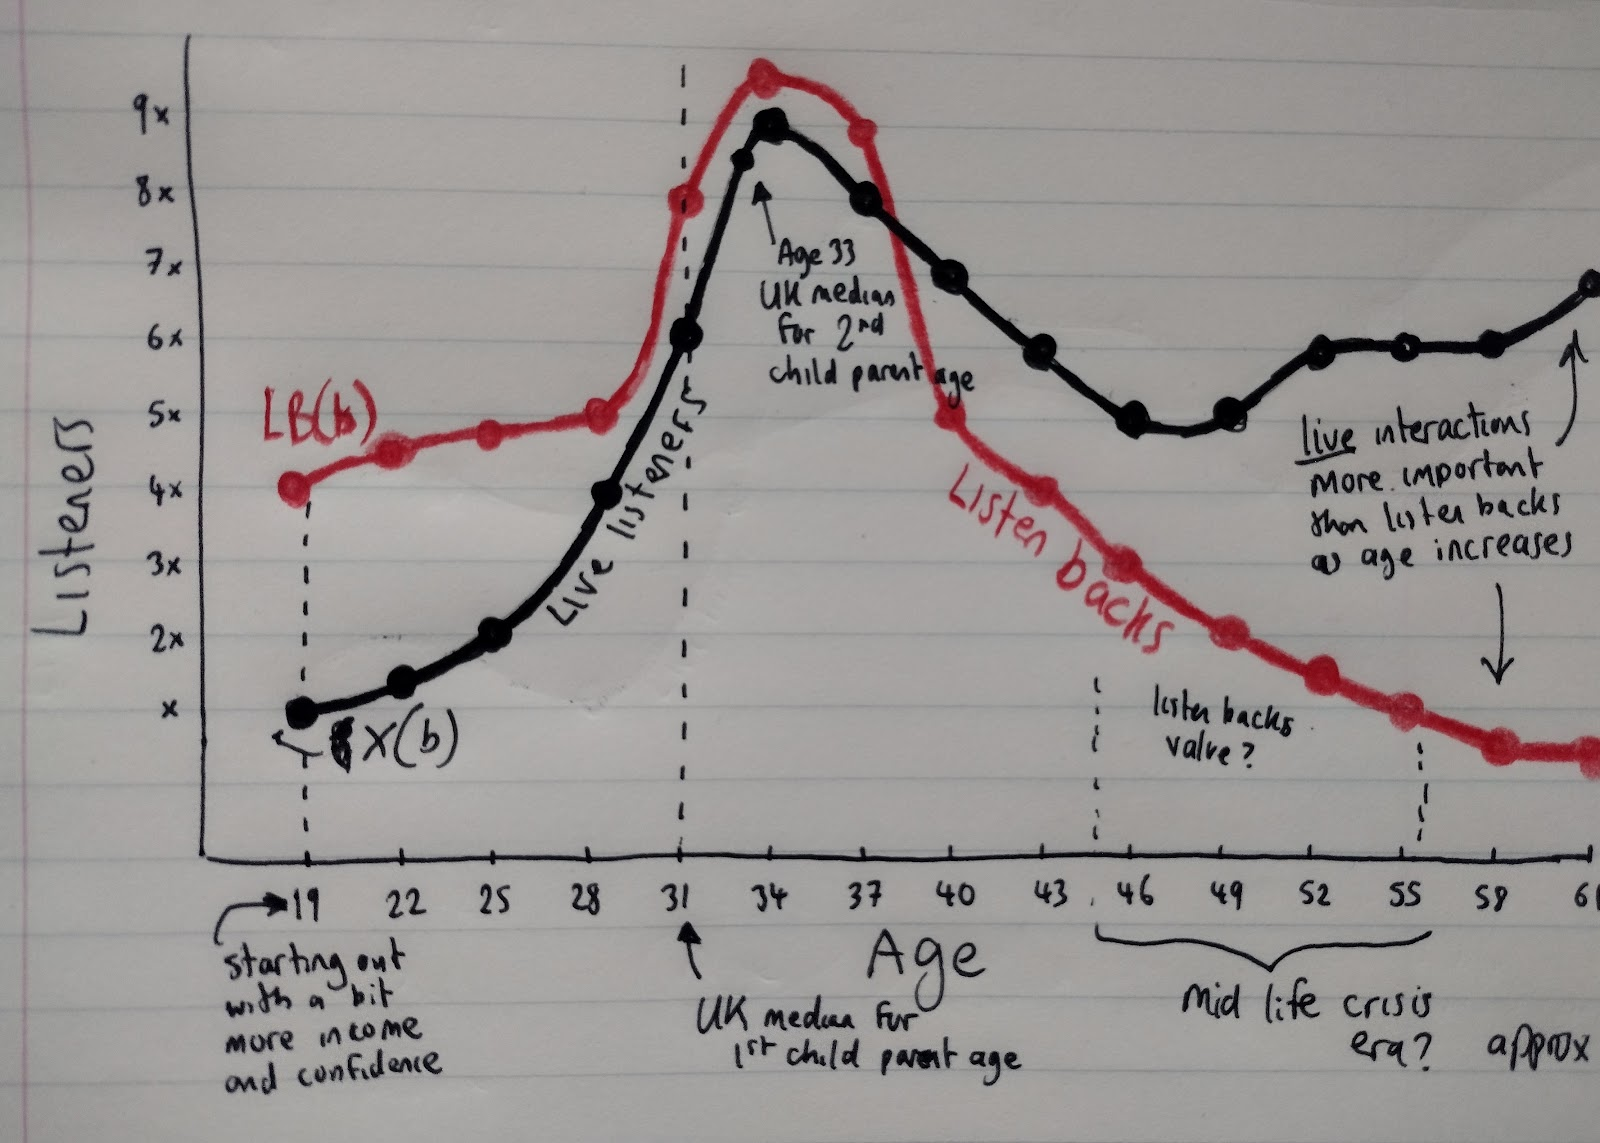 Listeners
9x
8x
7x
6x
5x
4x
3x
2x
x
LB(b)
X(b)
Live listeners
Listen backs
Age 33
UK median
for 2nd
child parent age
live interactions
more important
than listen backs
as age increases
listen backs
value?
19 22 25 28 31 34 37 40 43 46 49 52 55 58 61
Age
starting out
with a bit
more income
and confidence
UK median for
1st child parent age
Mid life crisis
era?
approx